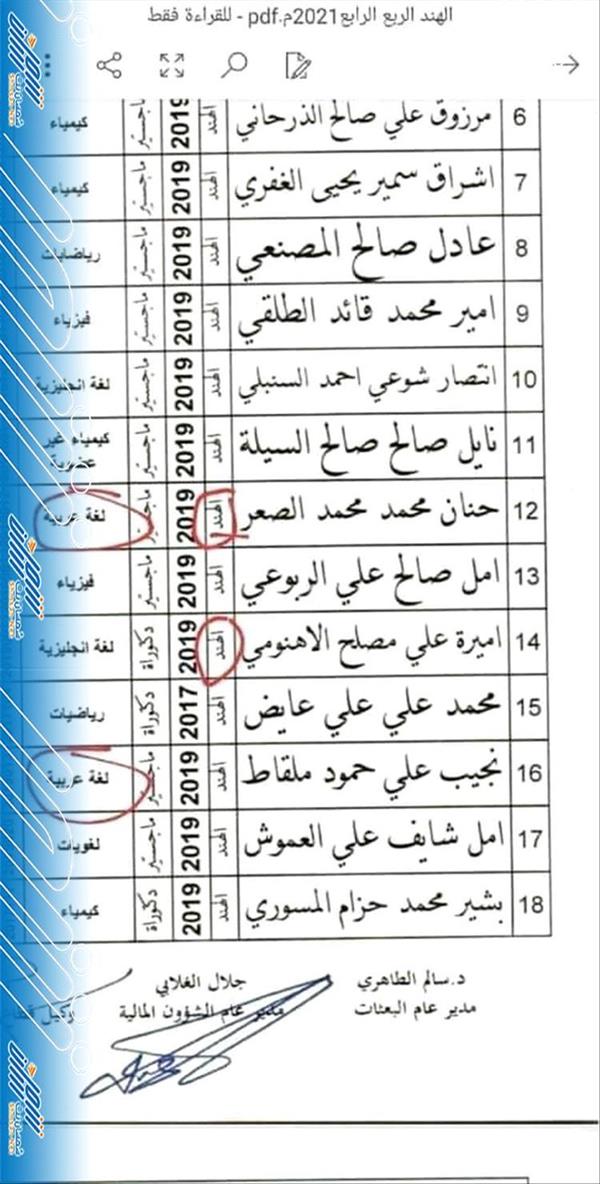 الهند الربع الرابع2021م.pdf - للقراءة فقط
6 مرزوق علي صالح الذرحاني الهند 2019 ماجستير كيمياء
7 اشراق سمير يحيى الغفري الهند 2019 ماجستير كيمياء
8 عادل صالح المصنعي الهند 2019 ماجستير رياضيات
9 امير محمد قائد الطلقي الهند 2019 ماجستير فيزياء
10 انتصار شوعي احمد السنبلي الهند 2019 ماجستير لغة انجليزية
11 نايل صالح صالح السيلة الهند 2019 ماجستير كيمياء غير عضوية
12 حنان محمد محمد الصعر الهند 2019 ماجستير لغة عربية
13 امل صالح علي الربوعي الهند 2019 ماجستير فيزياء
14 اميرة علي مصلح الاهنومي الهند 2019 دكتوراة لغة انجليزية
15 محمد علي علي عايض الهند 2017 دكتوراة رياضيات
16 نجيب علي حمود ملقاط الهند 2019 ماجستير لغة عربية
17 امل شايف علي العموش الهند 2019 ماجستير لغويات
18 بشير محمد حزام المسوري الهند 2019 دكتوراة كيمياء
د.سالم الطاهري جلال الغلابي
مدير عام البعثات مدير عام الشؤون المالية وكيل